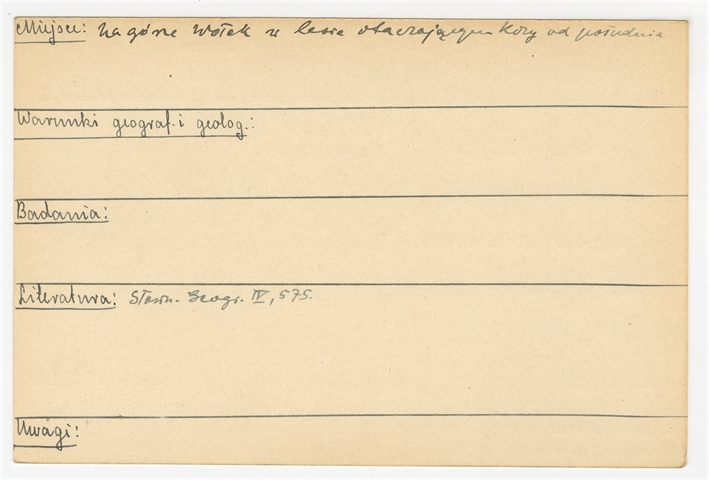 Miejsce: na górze Wołek w lesie otaczającym Kozy od południa
Warunki geograf. i geolog.:
Badania:
Literatura: Słown. Geogr. IV, 575.
Uwagi: